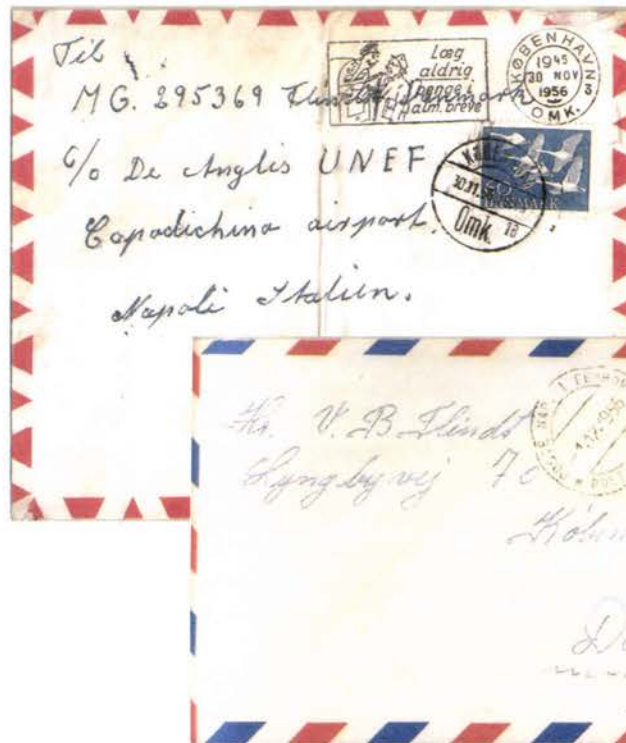 Til
MG. 295369 Flindt Danmark
c/o De Anglis UNEF
Capodichino airport.
Napoli Italien.
Læg
aldrig
penge i
alm. breve
KØBENHAVN
1945
30 NOV
1956
OMK.
30.11.
Omk. 1a
DANMARK
Hr. V. B Flindt
Lyngbyvej 7c
1956